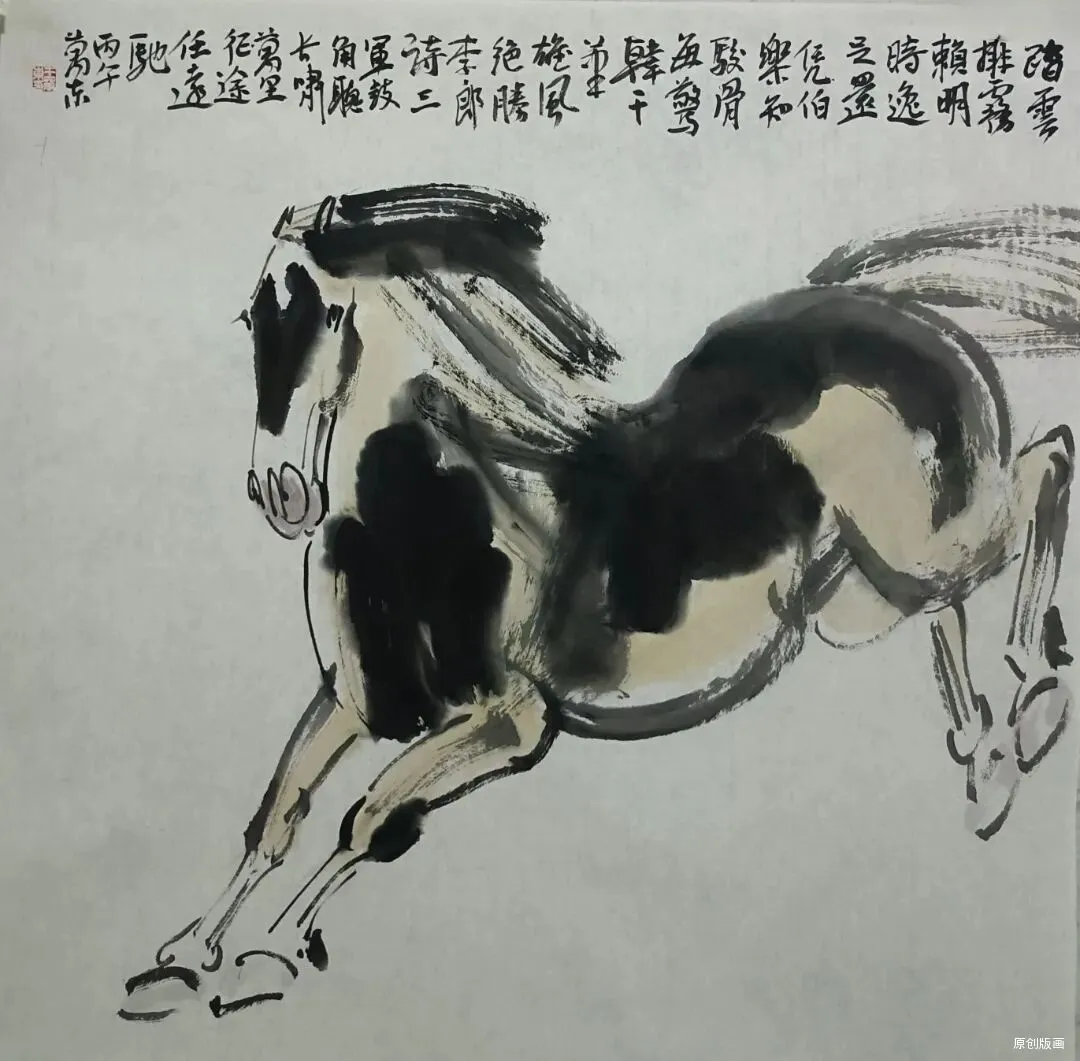 踏雲
排霧
賴明
時逸
足還
凭伯
樂知
駿骨
每驚
韓干
筆
雄風
絕勝
李郎
詩三
軍鼓
角聽
長嘯
萬里
征途
任遠
馳
丙午
萬東
原创版画